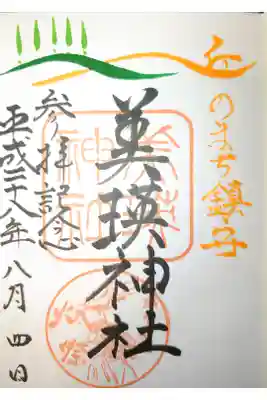 丘のまち鎮守
美瑛神社
参拝記念
平成二十八年八月四日